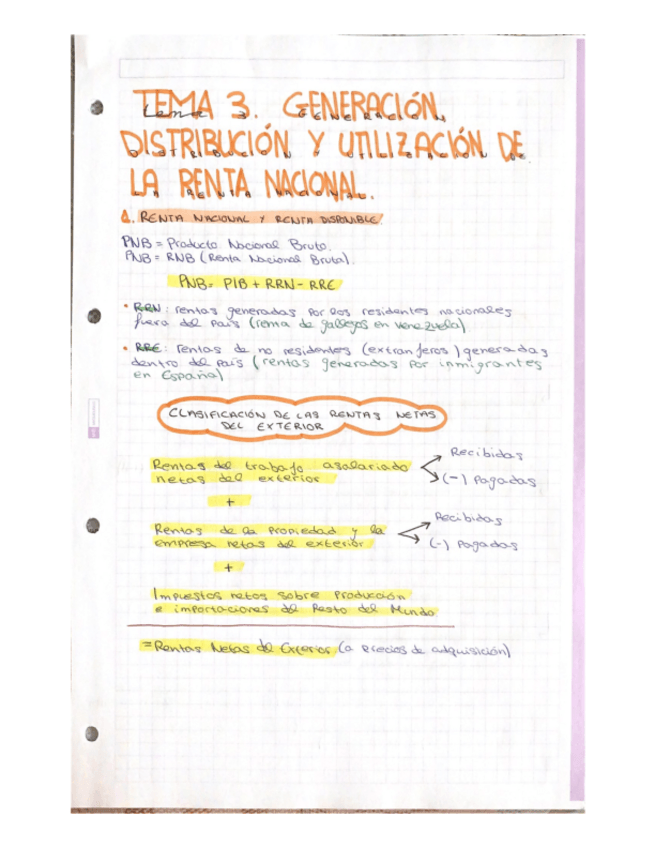 TEMA 3. GENERACIÓN,
DISTRIBUCIÓN Y UTILIZACIÓN DE
LA RENTA NACIONAL.
1. RENTA NACIONAL Y RENTA DISPONIBLE.
PNB = Producto Nacional Bruto.
PNB = RNB (Renta Nacional Bruta).
PNB = PIB + RRN - RRE
• RRN: rentas generadas por los residentes nacionales
fuera del país (rema de gallegos en Venezuela)
• RRE: rentas de no residentes (extranjeros) generadas
dentro del país (rentas generadas por inmigrantes
en España)
CLASIFICACIÓN DE LAS RENTAS NETAS
DEL EXTERIOR
Rentas del trabajo asalariado
netas del exterior
Recibidas
(-) Pagadas
+
Rentas de la propiedad y la
empresa netas del exterior
Recibidas
(-) Pagadas
+
Impuestos netos sobre producción
e importaciones del Resto del Mundo
= Rentas Netas del Exterior (a precios de adquisición)